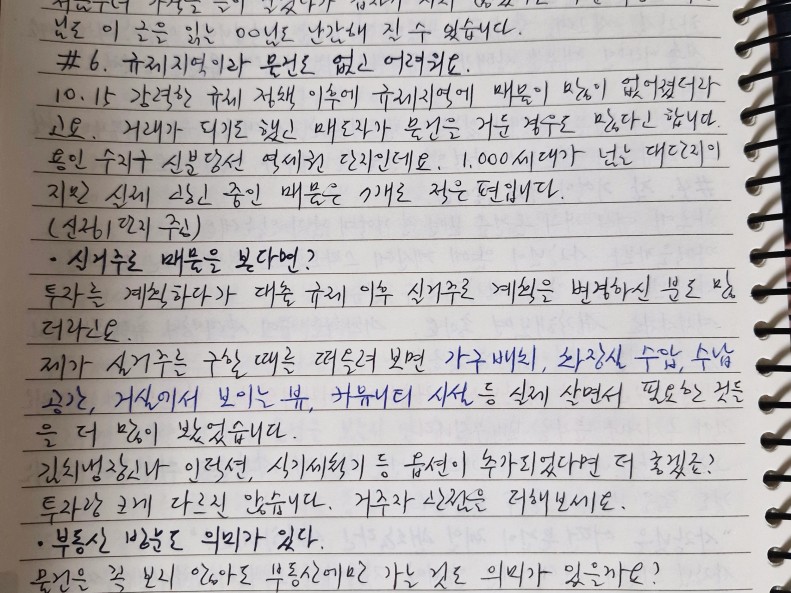 님도 이 글을 읽는 00님도 난감해 질 수 있습니다.
#6. 규제지역이라 물건도 없고 어려워요.
10.15 강력한 규제 정책 이후에 규제지역에 매물이 많이 없어졌더라
고요. 거래가 되기도 했고 매도자가 물건을 거둔 경우도 많다고 합니다.
용인 수지구 신분당선 역세권 단지인데요. 1.000세대가 넘는 대단지이
지만 실제 광고 중인 매물은 7개로 적은 편입니다.
· 실거주로 매물을 본다면?
투자를 계획하다가 대출 규제 이후 실거주로 계획을 변경하신 분도 많
더라고요.
제가 실거주를 구할 때를 떠올려 보면 가구 배치, 화장실 수압, 수납
공간, 거실에서 보이는 뷰, 커뮤니티 시설 등 실제 살면서 필요한 것들
을 더 많이 봤었습니다.
김치냉장고나 인덕션, 식기세척기 등 옵션이 추가되었다면 더 좋겠죠?
투자랑 크게 다르진 않습니다. 거주자 관점을 더해보세요.
· 부동산 방문도 의미가 있다.
물건을 꼭 보지 않아도 부동산에만 가는 것도 의미가 있을까요?